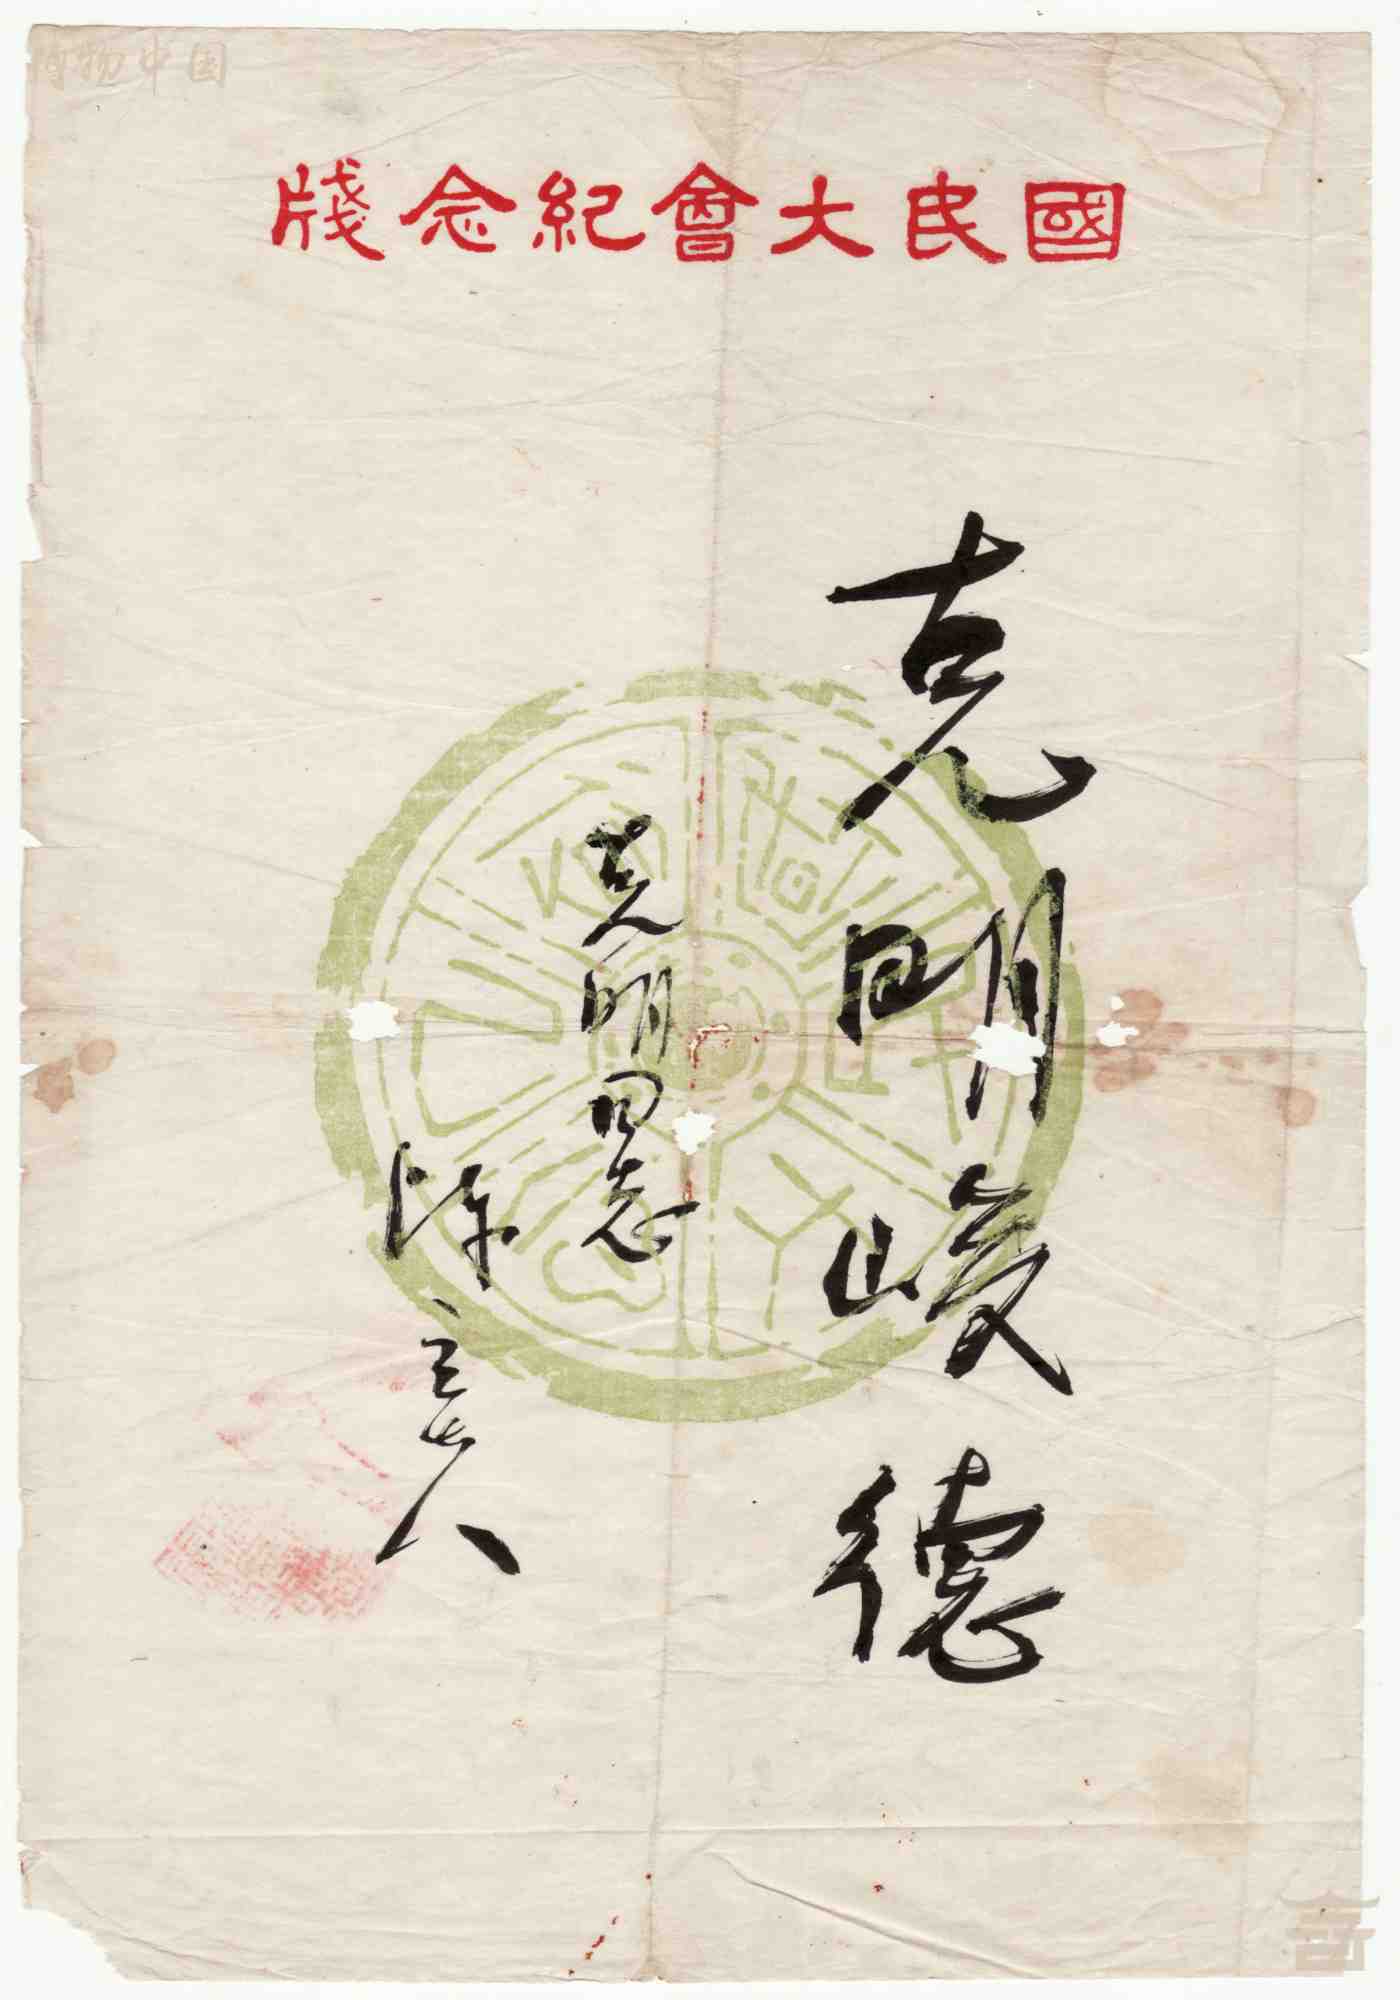 國民大會紀念牋
克明峻德
克明同志
陳立夫
博物中国